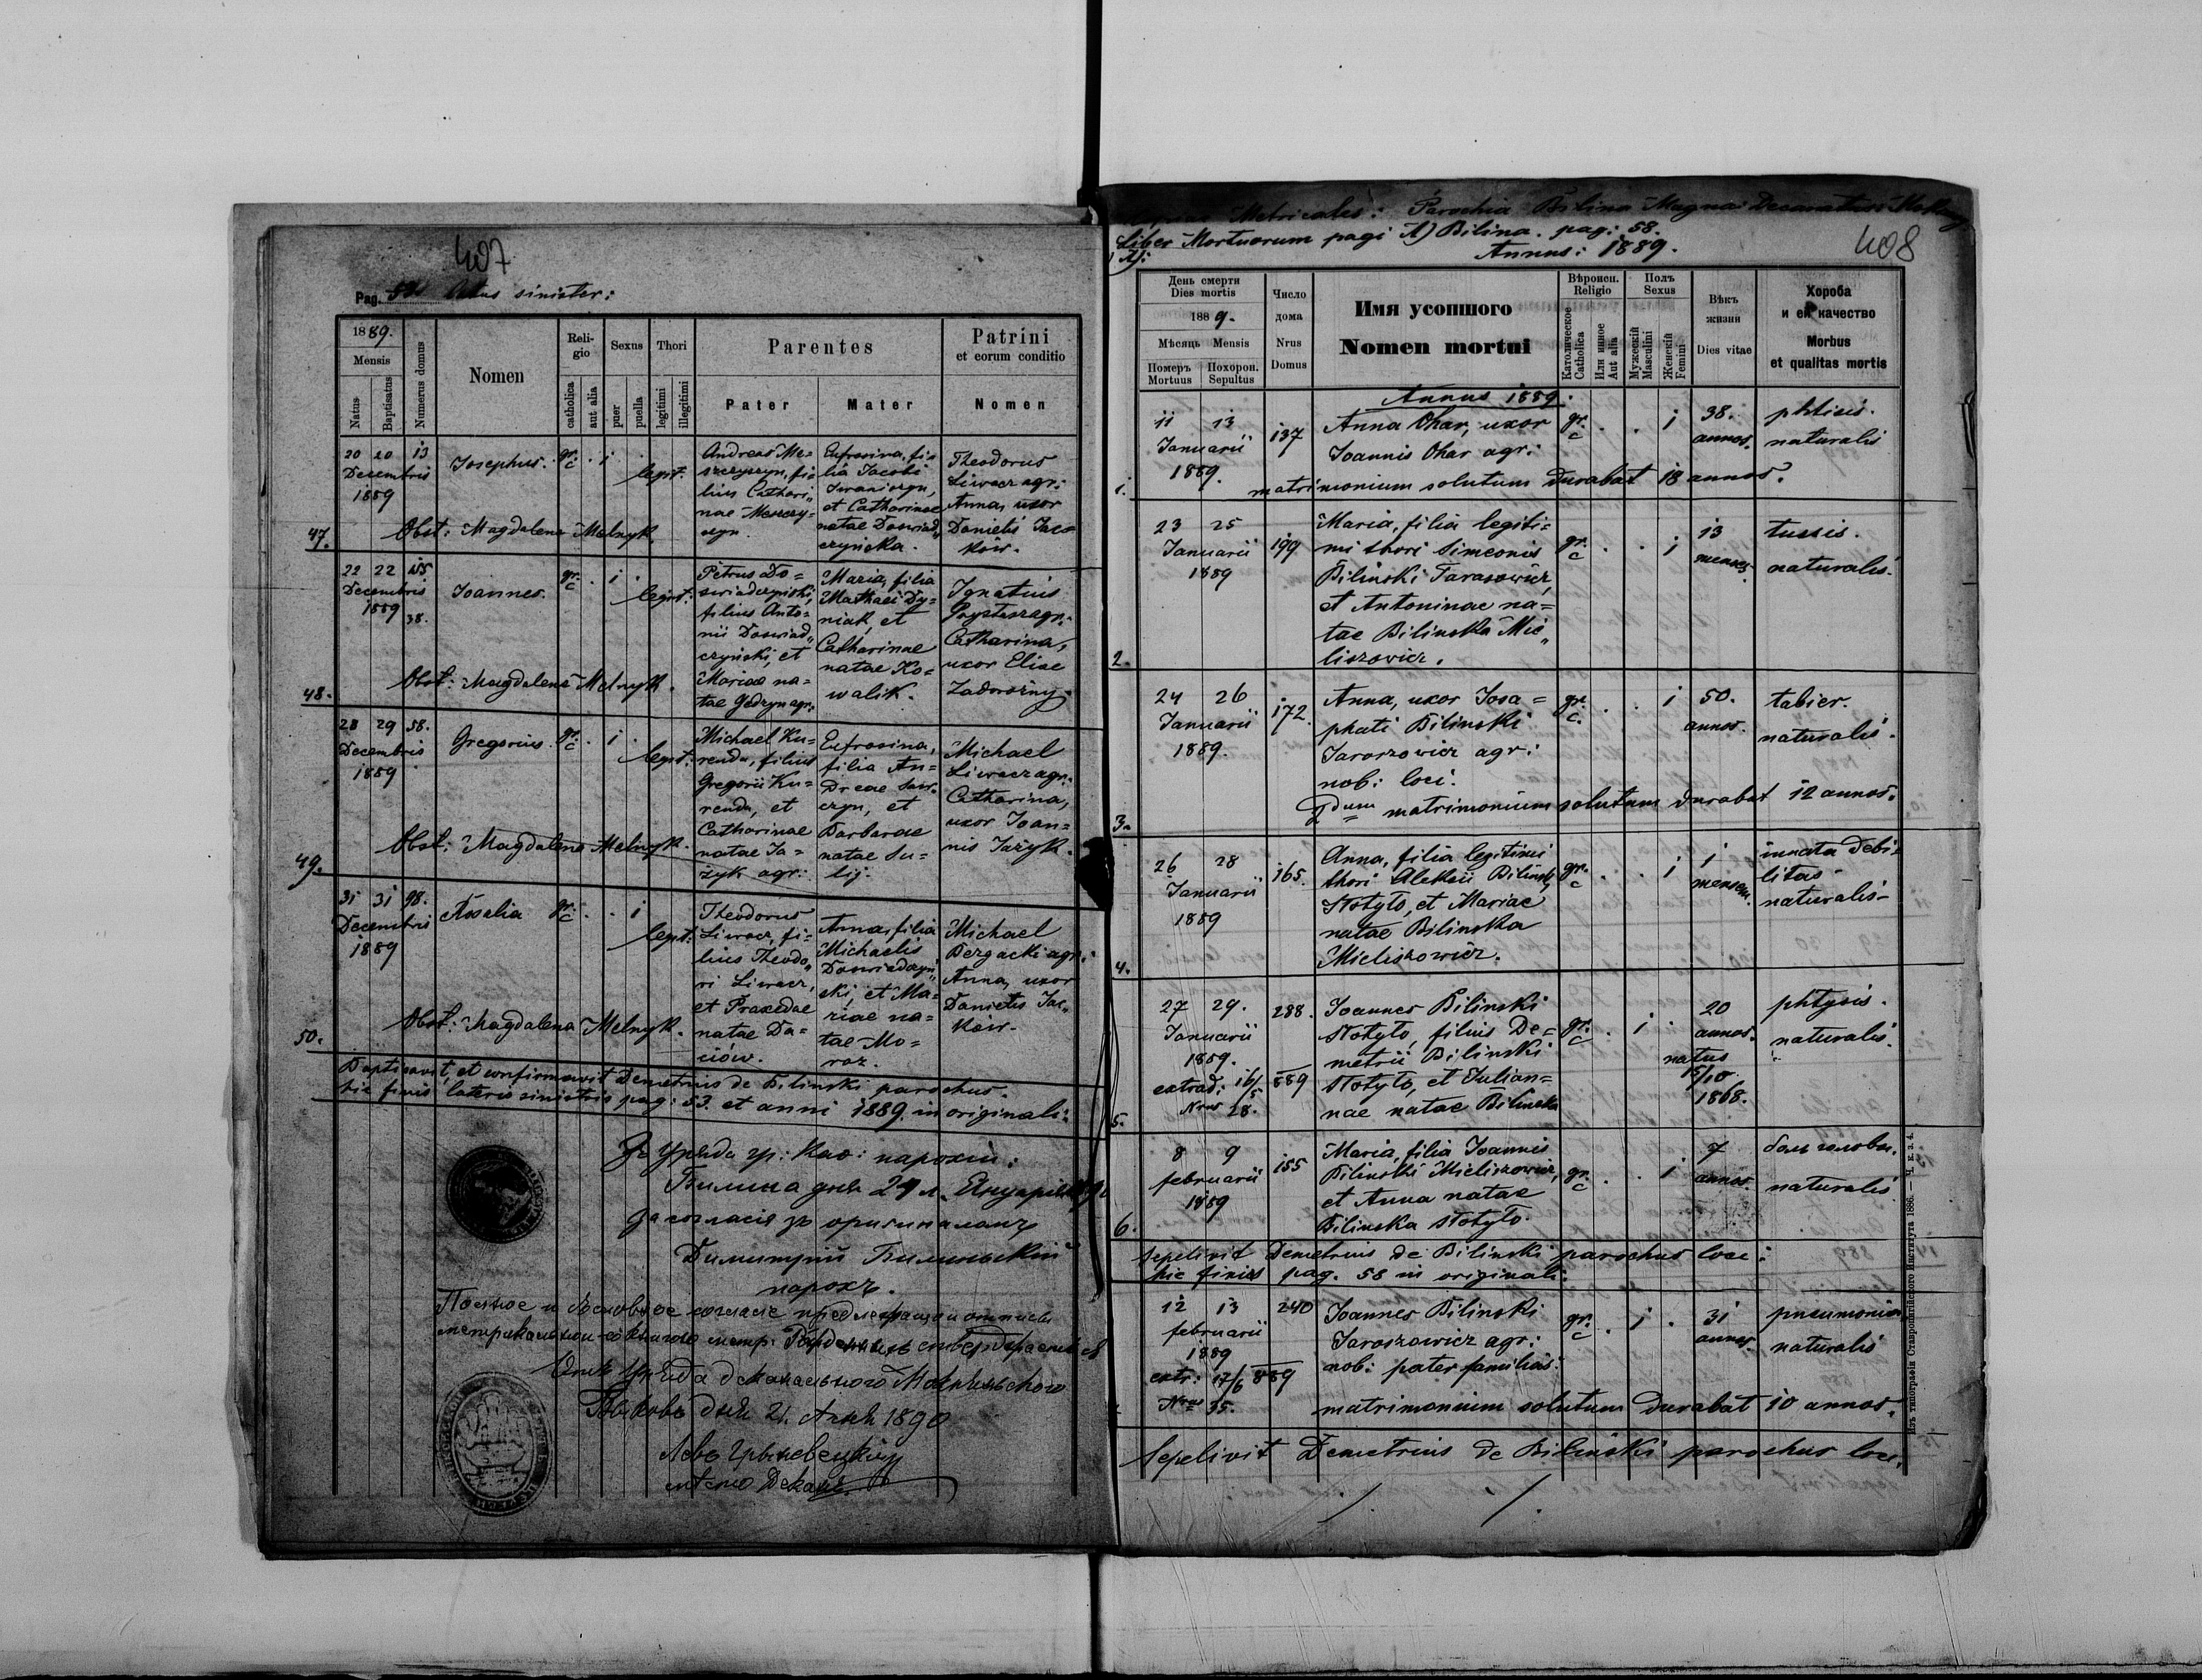 407
Pag. 53 latus sinister:
1889.
Mensis
Natus
Baptisatus
Numerus domus
Nomen
Religio
catholica
aut alia
Sexus
puer
puella
Thori
legitimi
illegitimi
Parentes
Pater
Mater
Patrini
et eorum conditio
Nomen
20 20 13
Decembris
1889
Josephus.
gr: c
i
legit:
Andreas Me=
szczyszyn, fi=
lius Cathari„
nae Meszczy=
szyn.
Eufrosina, fi=
lia Jacobi
Iwaniszyn,
et Catharinae
natae Doswiad„
czyńska.
Theodorus
Liwacz agr:
Anna, uxor
Danielis Jac=
ków.
47. Obst: Magdalena Melnyk.
22 22
Decembris
1889
38.
Joannes.
gr: c
i
legit:
Petrus Do=
swiadczyński,
filius Anto=
nii Doswiad„
czyński, et
Mariae na=
tae Gedzyn agr:
Maria, filia
Mathaei Dy=
niak, et
Catharinae
natae Ko=
walik.
Ignatius
agr:
Catharina,
uxor Eliae
Zadorożny.
48. Obst: Magdalena Melnyk.
28 29 58.
Decembris
1889
Gregorius.
gr: c
i
legit:
Michael Ku=
renda, filius
Gregorii Ku=
renda, et
Catharinae
natae Ja=
żyk agr:
Eufrosina,
filia An=
dreae
czyn, et
Barbarae
natae Su=
lij.
Michael
Liwacz agr:
Catharina,
uxor Joan=
nis Jażyk.
49. Obst: Magdalena Melnyk.
31 31 98.
Decembris
1889
Rosalia
gr: c
i
legit:
Theodorus
Liwacz, fi=
lius Theodo„
ri Liwacz,
et Praxedae
natae Da=
ciów.
Anna, filia
Michaelis
Doswiadczyń„
ski, et Ma=
riae na=
tae Mo=
roz.
Michael
Bergacki agr:
Anna, uxor
Danielis Jac„
ków.
50. Obst: Magdalena Melnyk.
Baptisavit, et confirmavit Demetrius de Bilinski parochus.
hic finis lateris sinistris pag: 53. et anni 1889. in originali:
Зъ Уряда гр: каѳ: парохіи:
Билина дня 24 л. Януарія 890
За согласіе зъ оригиналомъ
Димитрій Билинскій
парохъ.
Полное и дословное согласіе предлежащои отписи
метрикальнои со книгою метр.
Отъ Уряда деканального Мокрянского
дня 21. 1890
Левъ
декан.
Metricales: Parochia Bilina Magna: Decanatus:
Liber Mortuorum pagi A) Bilina. pag: 58.
A): Annus: 1889.
408
День смерти
Dies mortis
1889.
Мѣсяцъ Mensis
Померъ
Mortuus
Похорон.
Sepultus
Число
дома
Nrus
Domus
Имя усопшого
Nomen mortui
Вѣроисп.
Religio
Католическое
Catholica
Или инное
Aut alia
Полъ
Sexus
Мужескій
Masculini
Женскій
Femini
Вѣкъ
жизни
Dies vitae
Хороба
и еи качество
Morbus
et qualitas mortis
Annus 1889.
11 13
Januarii
1889.
137
Anna Ohar, uxor
Joannis Ohar agr:
gr: c
i
38.
annos.
phtisis.
naturalis
1. matrimonium solutum durabat 18 annos.
23 25
Januarii
1889
199
Maria, filia legiti=
mi thori Simeonis
Biliński Tarasowicz,
et Antoninae na=
tae Bilinska Mie„
liszowicz.
gr: c
i
13
menses.
tussis.
naturalis.
2.
24 26
Januarii
1889.
172.
Anna, uxor Josa=
phati Bilinski
Jaroszowicz agr:
nob: loci.
gr: c.
i
50.
annos.
tabier.
naturalis.
3. 2dum matrimonium solutum durabat 12 annos.
26 28
Januarii
1889
165.
Anna, filia legitimi
thori Aleksii Bilinski
Stotyło, et Mariae
natae Bilinska
Mieliszowicz.
gr: c
i
1
mensem.
innata debi=
litas
naturalis
4.
27 29.
Januarii
1889.
extrad: 16/5 889
Nrus 28.
288.
Joannes Bilinski
Stotyło, filius De=
metrii Bilinski
Stotyło, et Julian=
nae natae Bilinska
gr: c
i
20
annos.
natus
15/10
1868.
phtysis.
naturalis.
5.
8 9
februarii
1889
155
Maria, filia Joannis
Bilinski Mieliszowicz,
et Anna natae
Bilinska Stotyło.
gr: c
i
7
annos.
боль головы.
naturalis
6.
Sepelivit Demetrius de Bilinski parochus loci:
hic finis pag. 58 in originali:
12 13
februarii
1889
extr: 17/6 889
Nrus 35.
240
Joannes Bilinski
Jaroszowicz agr:
nob: pater familias:
gr: c
i
31
annos.
pneumonia
naturalis
matrimonium solutum durabat 10 annos.
Sepelivit Demetrius de Biliński parochus loci.
Изъ типографіи Ставропигійского Института 1886. — Ч. к. з. 4.